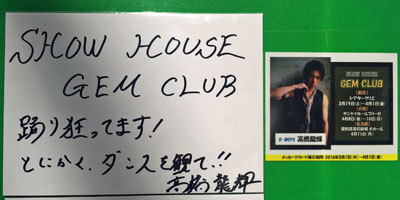 SHOW HOUSE
GEM CLUB
踊り狂ってます!
とにかく、ダンスを観て!!
高橋龍輝
SHOW HOUSE
GEM CLUB
【東京】
シアタークリエ
3月19日(土)~4月1日(金)
【大阪】
サンケイホールブリーゼ
4月8日(金)~10日(日)
愛知県芸術劇場 大ホール
4月11日(月)
D-BOYS 高橋龍輝
メッセージカード掲示期間 2016年3月1日(火)~4月1日(金)